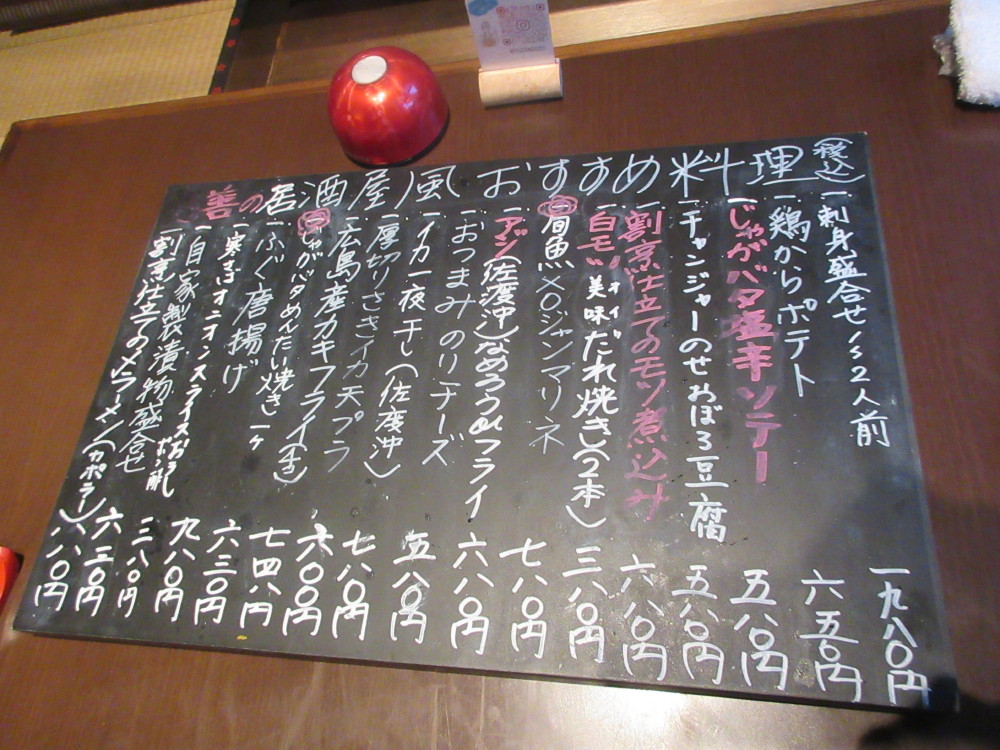 善の居酒屋風おすすめ料理(税込)
一刺身盛合せ1~2人前 一九八〇円
一鶏からポテト 六五〇円
一じゃがバタ塩辛ソテー 五八〇円
一チャンジャーのせおぼろ豆腐 五八〇円
一割烹仕立てのモツ煮込み 六八〇円
一白モツ美味だれ焼き(2本) 三八〇円
一旬魚XOジャンマリネ 七八〇円
一アジ(佐渡沖)なめろうorフライ 六八〇円
一おつまみのりチーズ 五八〇円
一イカ一夜干し(佐渡沖) 七八〇円
一厚切りさきイカ天プラ 六〇〇円
一広島産カキフライ 七四八円
一じゃがバタめんたい焼き一ヶ 六三〇円
一ふぐ唐揚げ 九八〇円
一オニオンスライスおろしポン酢 三八〇円
一自家製漬物盛合せ 六三〇円
一割烹仕立ての〆ラーメン(カポラー) 八八〇円